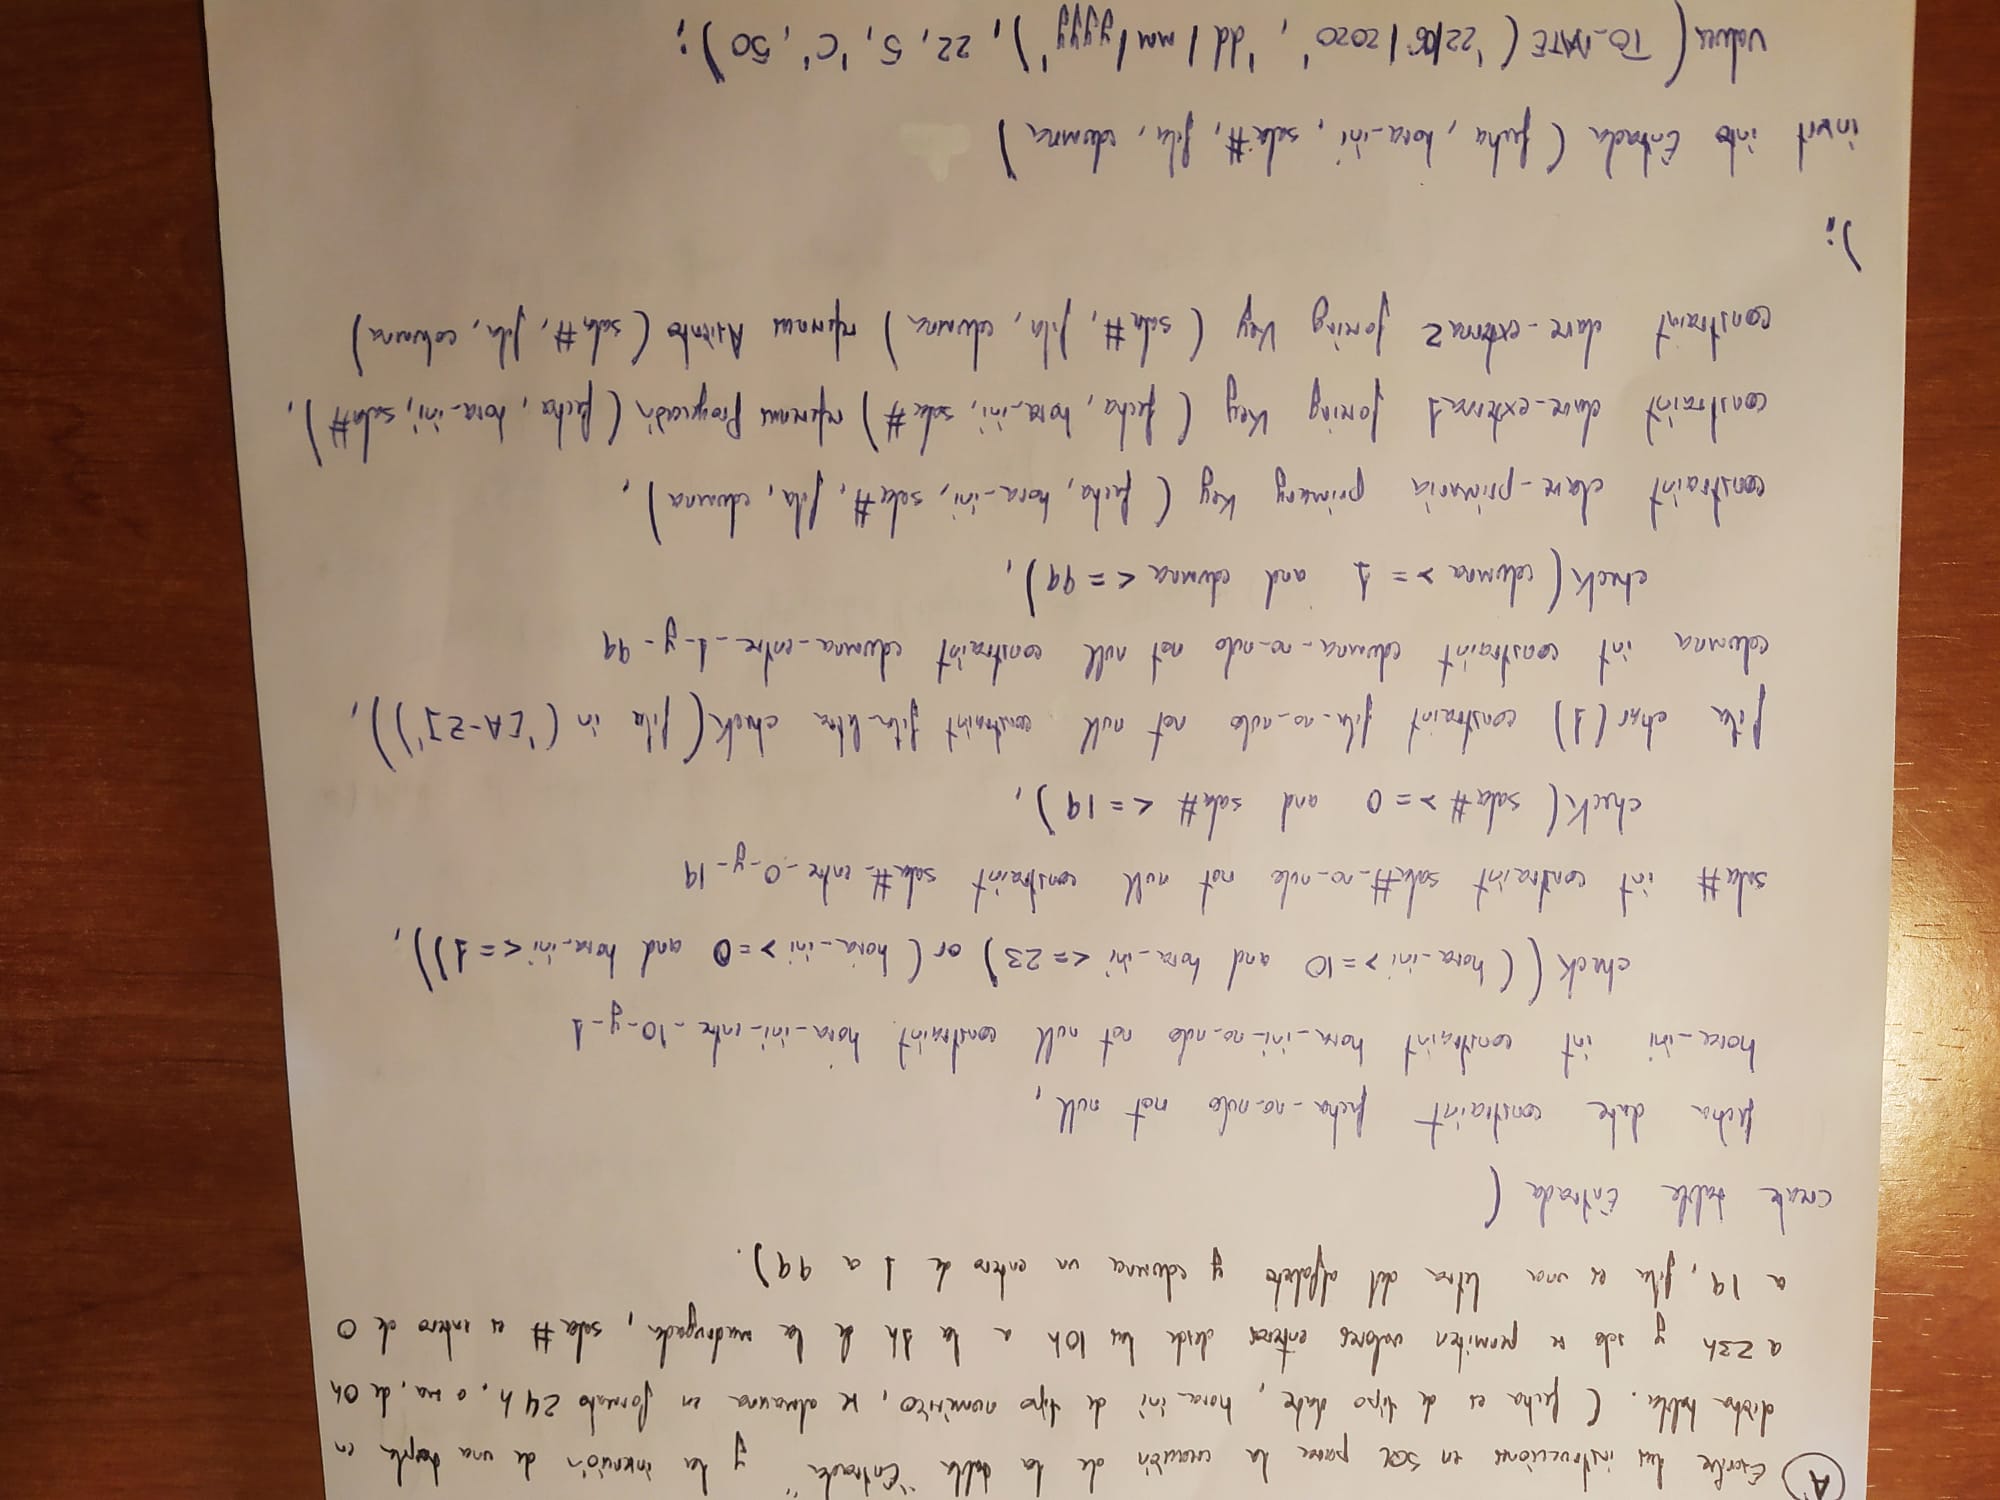 A
Escribe las instrucciones en SQL para la creación de la tabla "Entrada" y la inserción de una tupla en
dicha tabla. ( fecha es de tipo date, hora_ini de tipo numérico, se almacena en formato 24 h, o sea, de 0h
a 23h y solo se permiten valores enteros desde las 10h a la 1h de la madrugada, sala# es entero de 0
a 19, fila es una letra del alfabeto y columna un entero de 1 a 99).
create table Entrada (
fecha date constraint fecha_no_nulo not null,
hora_ini int constraint hora_ini_no_nulo not null constraint hora_ini_entre_10_y_1
check ( ( hora_ini >= 10 and hora_ini <= 23 ) or ( hora_ini >= 0 and hora_ini <= 1 ) ),
sala# int constraint sala#_no_nulo not null constraint sala#_entre_0_y_19
check ( sala# >= 0 and sala# <= 19 ),
fila char (1) constraint fila_no_nulo not null constraint fila_letra check ( fila in ( '[A-Z]' ) ),
columna int constraint columna_no_nulo not null constraint columna_entre_1_y_99
check ( columna >= 1 and columna <= 99 ),
constraint clave_primaria primary key ( fecha, hora_ini, sala#, fila, columna ),
constraint clave_externa1 foreing key ( fecha, hora_ini, sala# ) references Proyección ( fecha, hora_ini, sala# ),
constraint clave_externa2 foreing key ( sala#, fila, columna ) references Asiento ( sala#, fila, columna )
);
insert into Entrada ( fecha, hora_ini, sala#, fila, columna )
values ( TO_DATE ( '22/05/2020', 'dd/mm/yyyy' ), 22, 5, 'C', 50 );